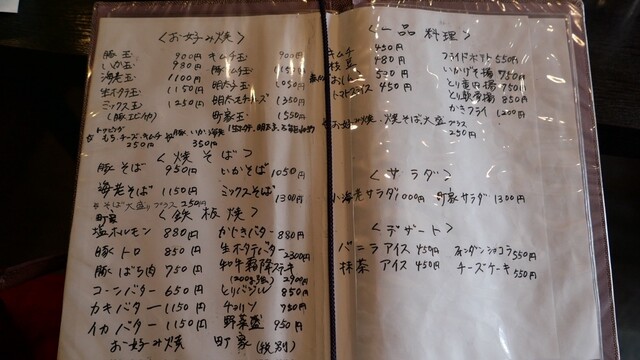 〈お好み焼〉
豚玉 900円 キムチ玉 900円
いか玉 980円 豚キムチ玉
海老玉 1100円 明太玉 1050円
生ホタテ玉 1150円 明太モチチーズ 1350円
ミックス玉 1250円 町家玉 1550円
(豚・エビ・いか)
トッピング
もち、チーズ、キムチ 250円 豚、いか、海老 350円
〈焼そば〉
豚そば 950円 いかそば 1050円
海老そば 1150円 ミックスそば 1300円
そば大盛りプラス 250円
町家〈鉄板焼〉
塩ホルモン 880円 かじきバター 880円
豚トロ 850円 生ホタテバター 2300円
豚ばら肉 750円 和牛霜降ステーキ (200g) 2900円
コーンバター 650円 とりバジル 850円
カキバター 1150円 チョリソ 750円
イカバター 1150円 野菜盛 950円
お好み焼 町家 (税別)
〈一品料理〉
キムチ 450円 フライドポテト 550円
枝豆 480円 いかげそ揚 750円
500円 とり唐揚 750円
トマトスライス 450円 とり軟骨揚 850円
かきフライ 1200円
お好み焼・焼そば大盛プラス 250円
〈サラダ〉
小海老サラダ 1000円 町家サラダ 1300円
〈デザート〉
バニラアイス 450円 フォンダンショコラ 550円
抹茶アイス 450円 チーズケーキ 550円